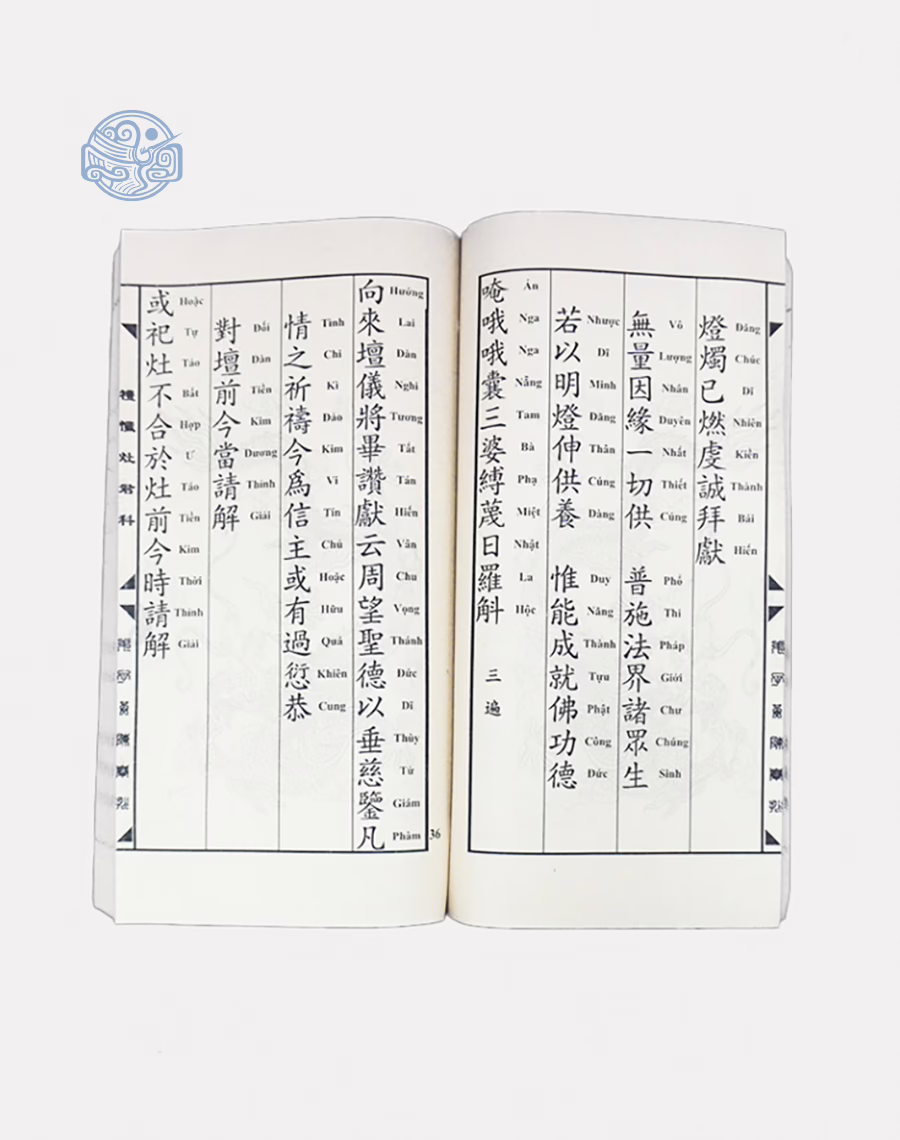 燈燭已燃虔誠拜獻
Đăng Chúc Dĩ Nhiên Kiền Thành Bái Hiến
無量因緣一切供 普施法界諸眾生
Vô Lượng Nhân Duyên Nhất Thiết Cúng Phổ Thi Pháp Giới Chư Chúng Sinh
若以明燈伸供養 惟能成就佛功德
Nhược Dĩ Minh Đăng Thân Cúng Dàng Duy Năng Thành Tựu Phật Công Đức
唵哦哦囊三婆縛蔑日羅斛 三遍
Án Nga Nga Nẵng Tam Bà Phạ Miệt Nhật La Hộc
36
向來壇儀將畢讚獻云周望聖德以垂慈鑒凡
Hướng Lai Dàn Nghi Tương Tất Tán Hiến Vân Chu Vọng Thánh Đức Dĩ Thùy Từ Giám Phàm
情之祈禱今爲信主或有過愆恭
Tình Chi Kì Đảo Kim Vi Tín Chủ Hoặc Hữu Quá Khiên Cung
對壇前今當請解
Đối Dàn Tiền Kim Đương Thỉnh Giải
或祀灶不合於灶前今時請解
Hoặc Tự Táo Bất Hợp Ư Táo Tiền Kim Thời Thỉnh Giải
禮懺灶君科